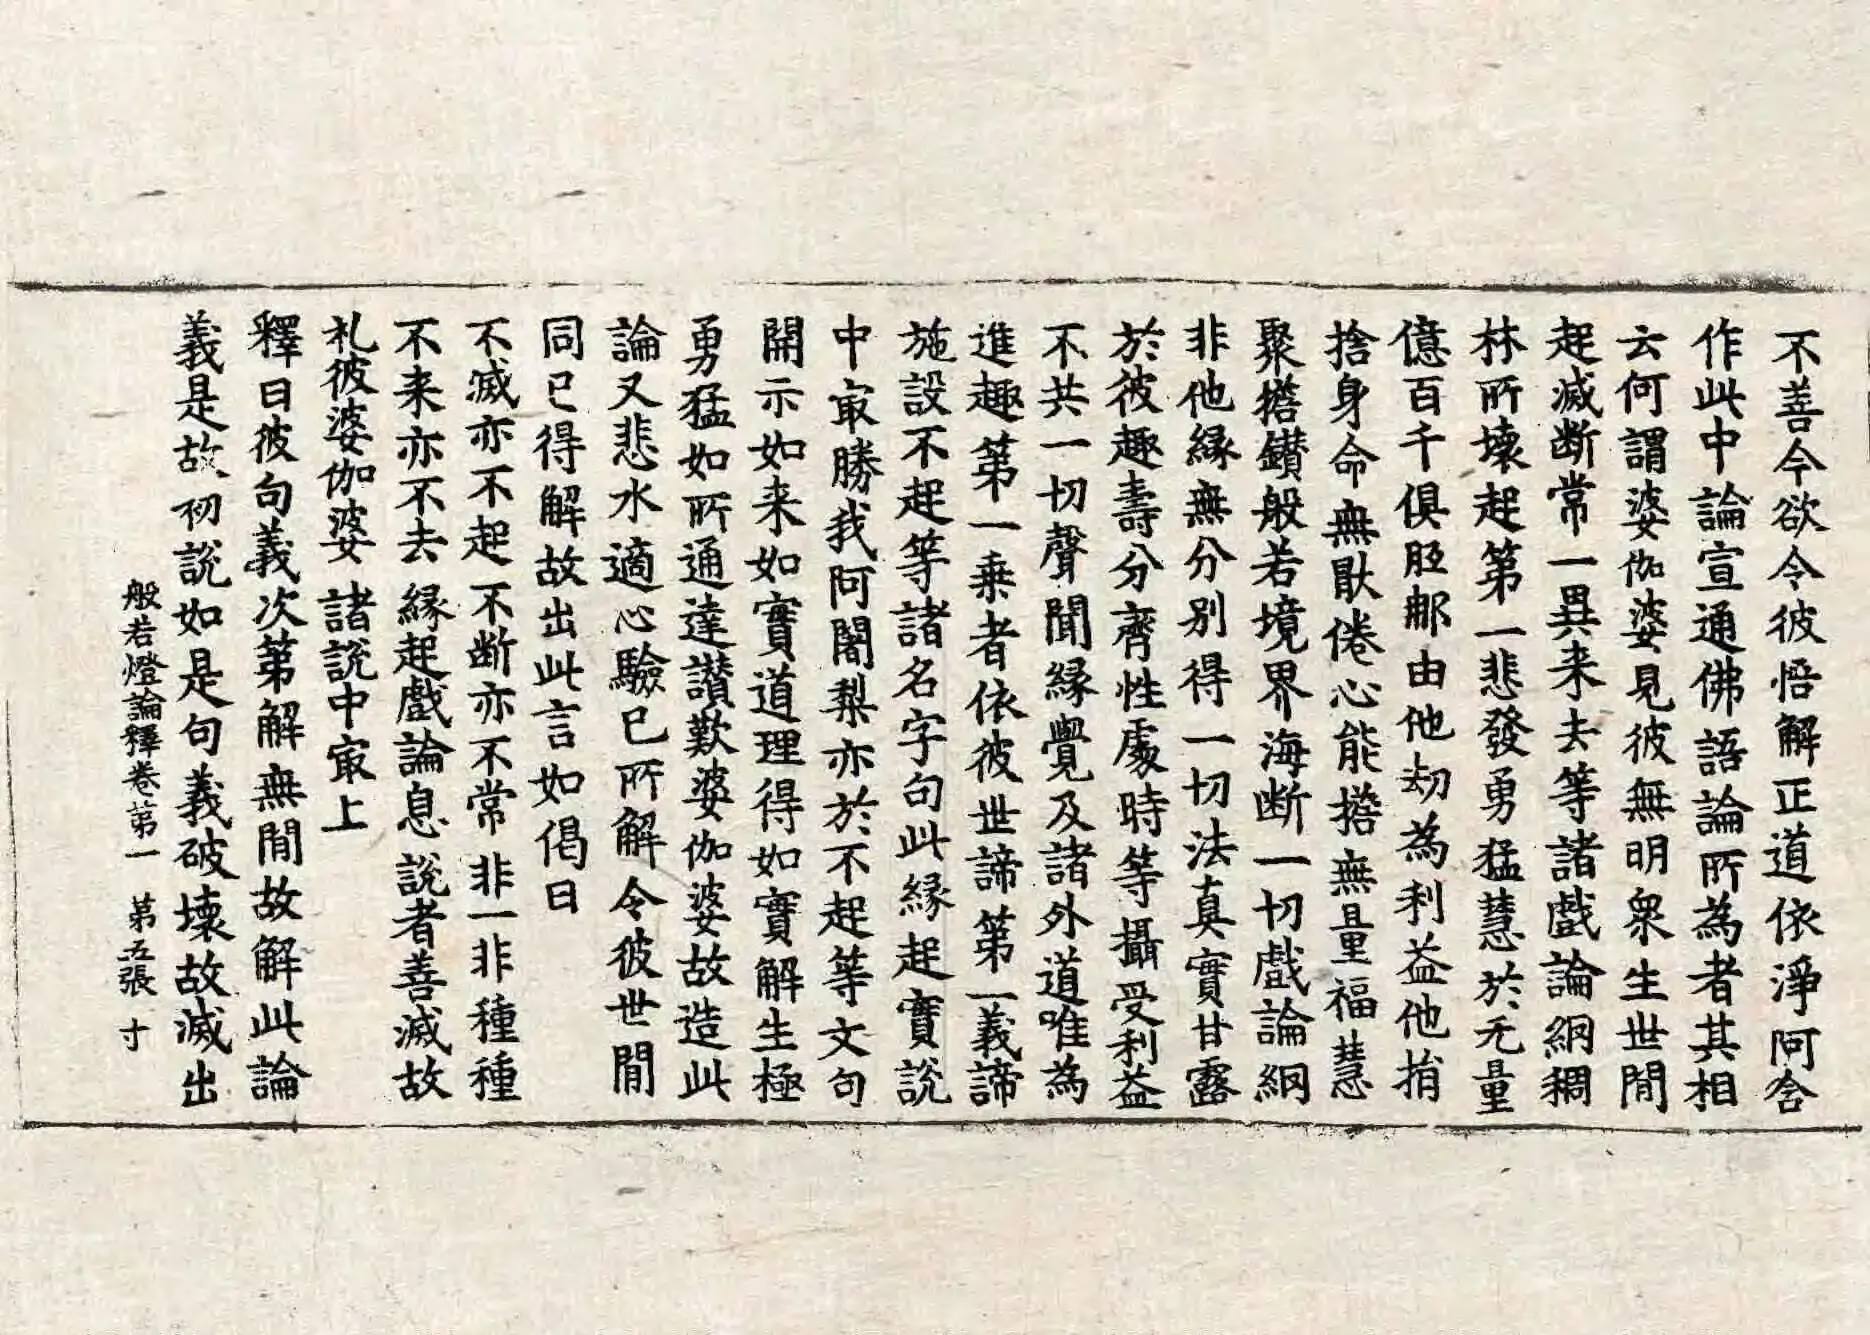 不善今欲令彼悟解正道依淨阿含
作此中論宣通佛語論所為者其相
云何謂婆伽婆見彼無明衆生世閒
起滅断常一異来去等諸戲論網稠
林所壞起第一悲發勇猛慧於无量
億百千俱胝䣧由他劫為利益他捎
捨身命無猒倦心能擔無量福慧
聚擔鑚般若境界海断一切戲論網
非他緣無分别得一切法真實甘露
於彼趣壽分齊性處時等攝受利益
不共一切聲聞緣覺及諸外道唯為
進趣第一乗者依彼世諦第一義諦
施設不起等諸名字句此緣起實説
中㝡勝我阿闍梨亦於不起等文句
開示如来如實道理得如實解生極
勇猛如所通達讃歎婆伽婆故造此
論又悲水適心驗已所解令彼世閒
同已得解故出此言如偈曰
不滅亦不起 不断亦不常 非一非種種
不来亦不去 緣起戲論息 説者善滅故
礼彼婆伽婆 諸説中㝡上
釋曰彼句義次第解無閒故解此論
義是故初説如是句義破壞故滅出
般若燈論釋卷第一 第五張 寸